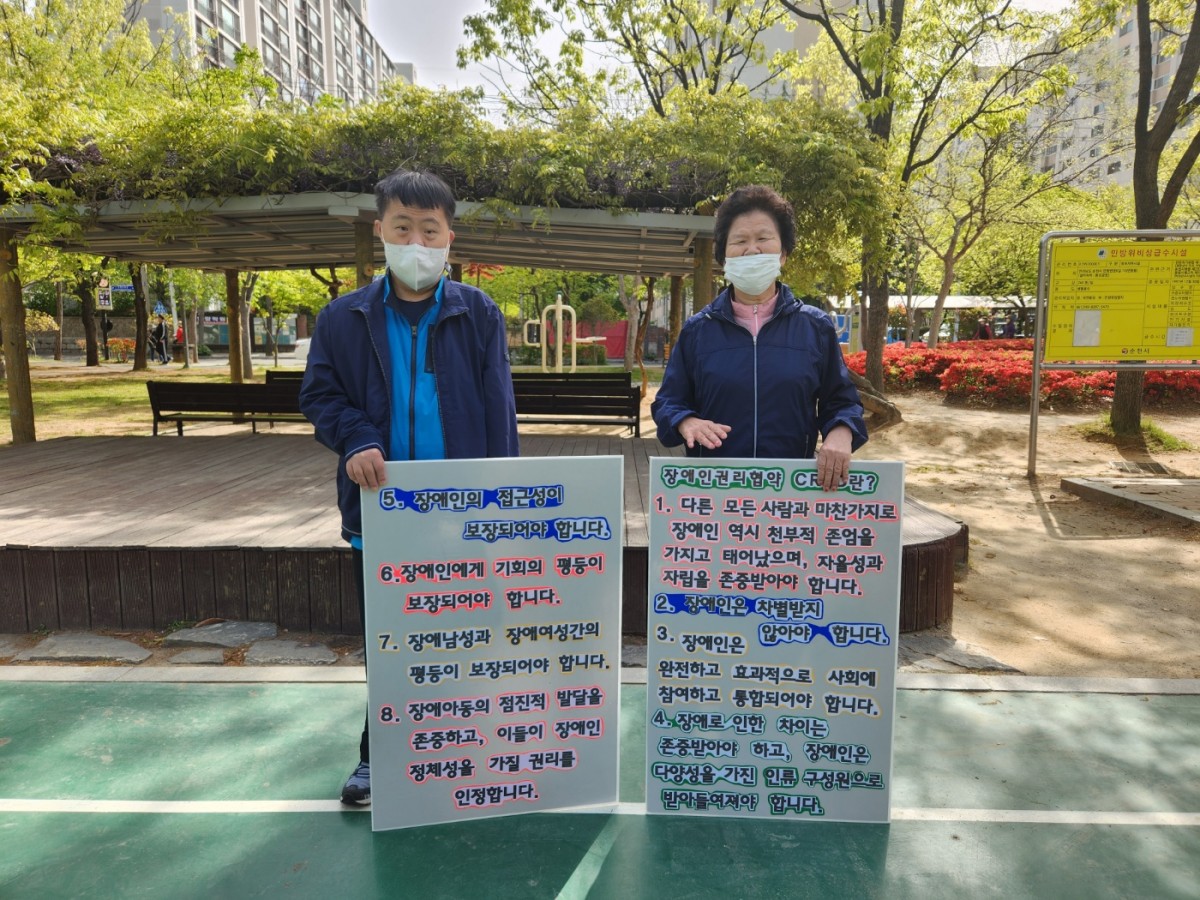 장애인권리협약 CR란?
1. 다른 모든 사람과 마찬가지로
장애인 역시 천부적 존엄을
가지고 태어났으며, 자율성과
자립을 존중받아야 합니다.
2. 장애인은 차별받지
않아야 합니다.
3. 장애인은
완전하고 효과적으로 사회에
참여하고 통합되어야 합니다.
4. 장애로 인한 차이는
존중받아야 하고, 장애인은
다양성을 가진 인류 구성원으로
받아들여져야 합니다.
5. 장애인의 접근성이
보장되어야 합니다.
6. 장애인에게 기회의 평등이
보장되어야 합니다.
7. 장애남성과 장애여성간의
평등이 보장되어야 합니다.
8. 장애아동의 점진적 발달을
존중하고, 이들이 장애인
정체성을 가질 권리를
인정합니다.
민방위비상급수시설
순천시